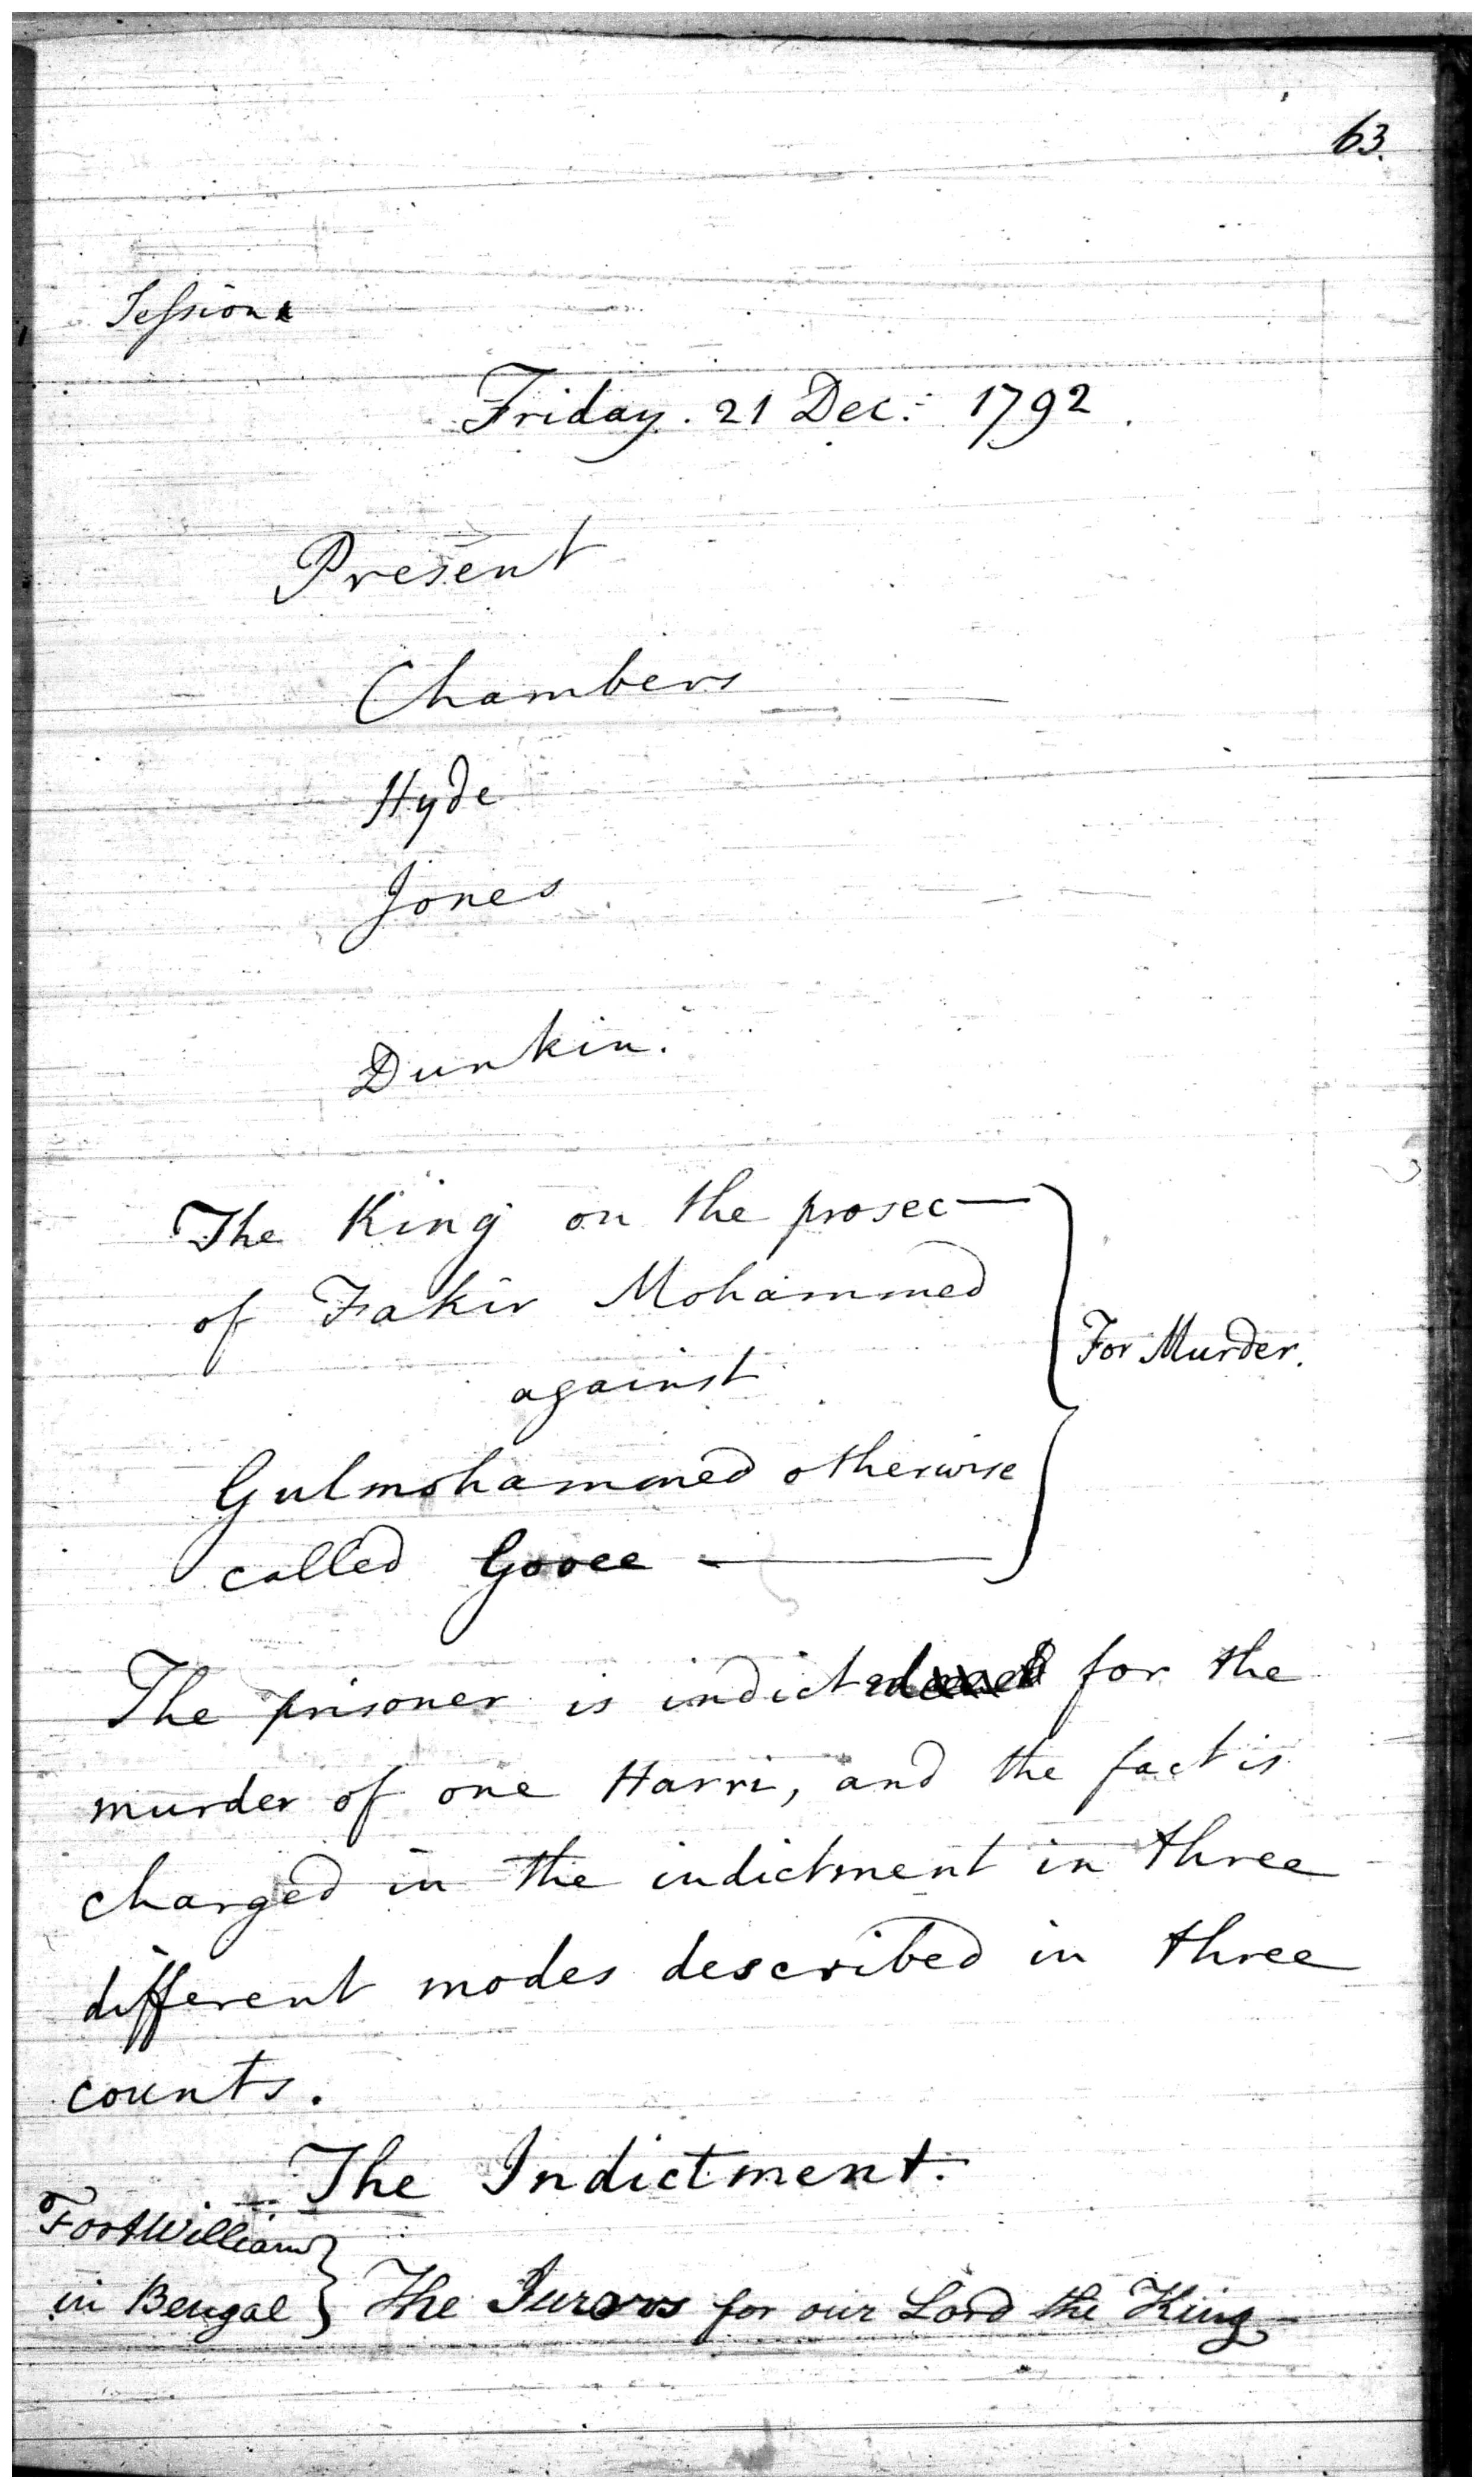 63.
Sessions
Friday. 21 Dec: 1792
Present
Chambers
Hyde
Jones
Dunkin.
The King on the prosec—
of Fakir Mohammed
against
For Murder.
Gulmohammed otherwise
called Gooee —
The prisoner is indicted for the
murder of one Harri, and the fact is
charged in the indictment in three
different modes described in three
counts.
The Indictment.
Fort William
in Bengal } The Jurors for our Lord the King